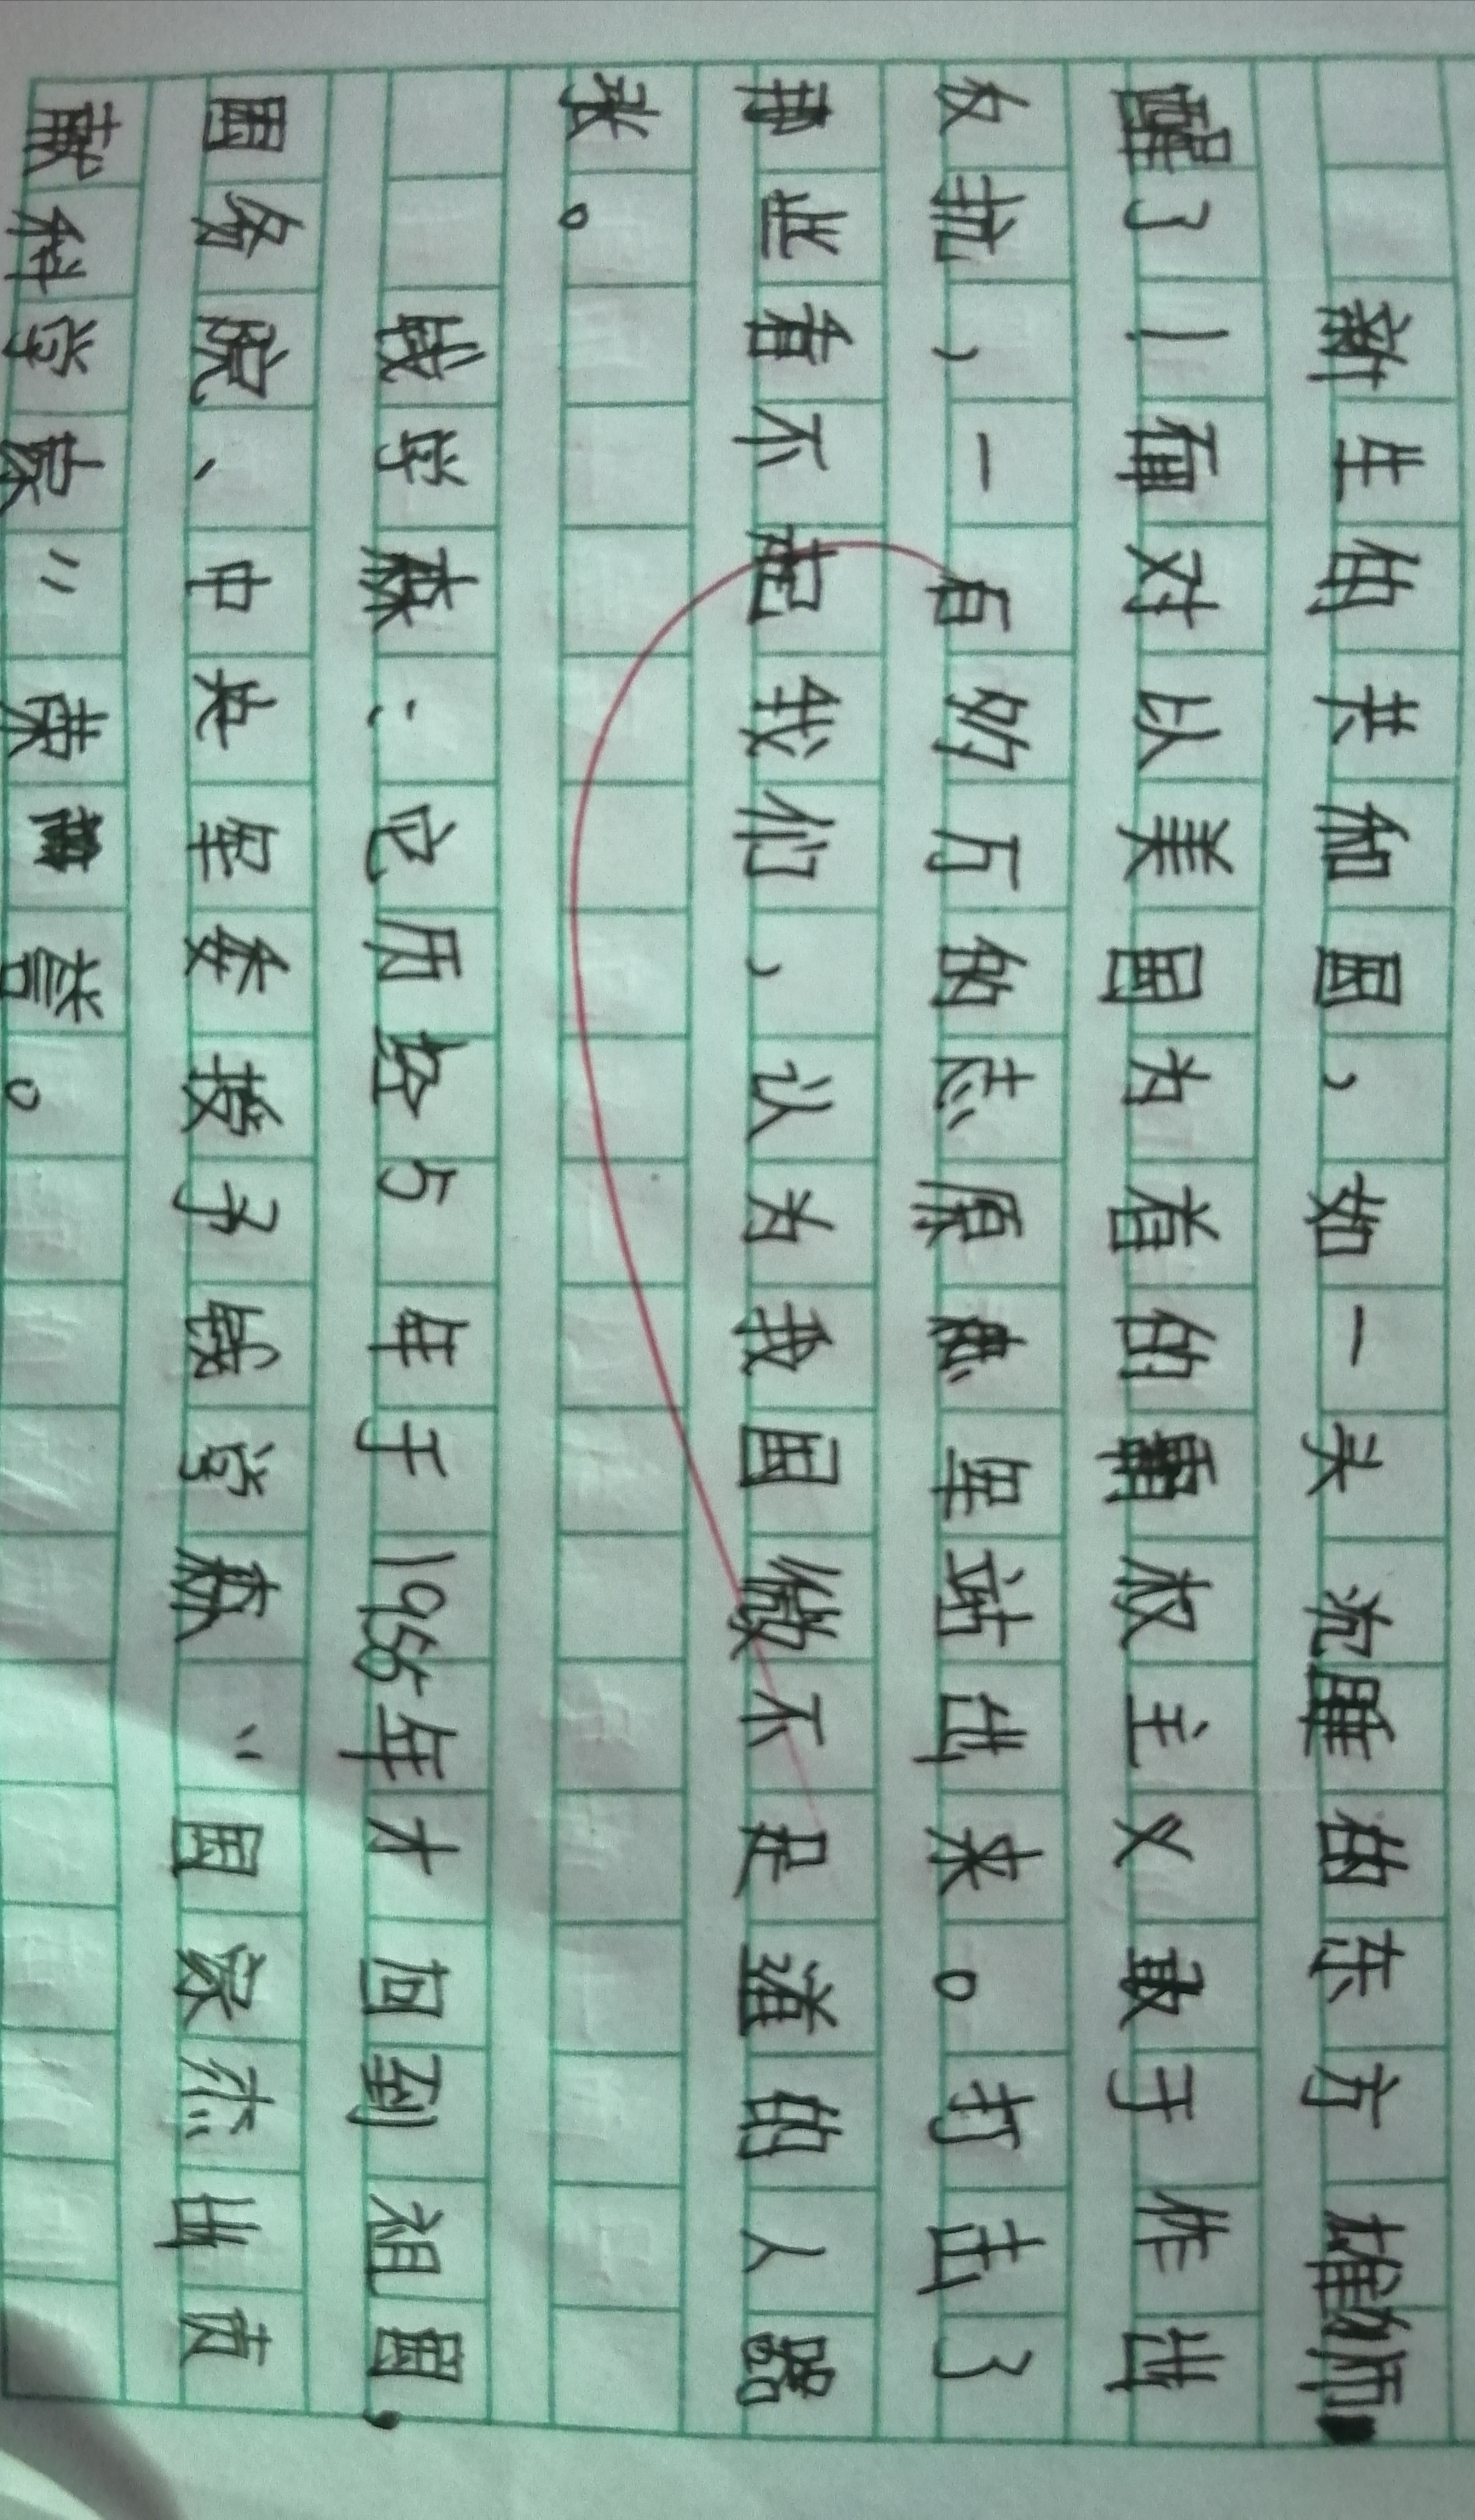 新生的共和国，如一头沉睡的东方雄狮，
醒了！面对以美国为首的霸权主义敢于作出
反抗，一百多万的志愿军站出来。打击了
那些看不起我们，认为我国微不足道的人嚣
张。
钱学森：它历经5年于1955年才回到祖国，
国务院、中央军委授予钱学森“国家杰出贡
献科学家”荣誉。